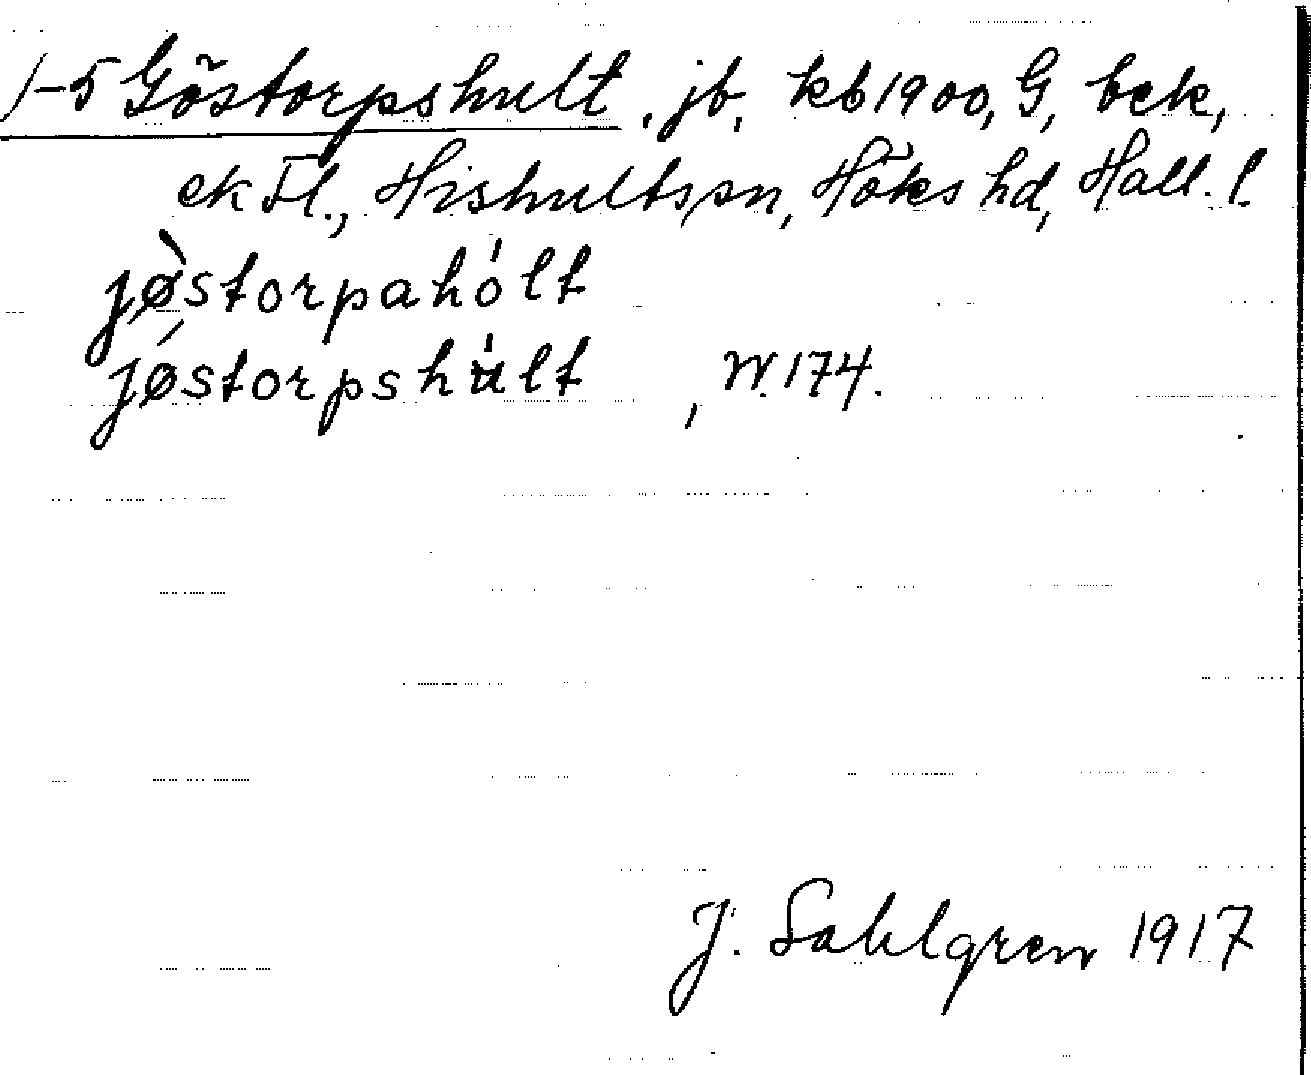 1-5 Göstorpshult, jb, kb 1900, G, bek,
ek Fl., Hishults sn, Höks hd, Hall. l.
jøstorpahólt
jøstorpshult, W. 174.
J. Sahlgren 1917